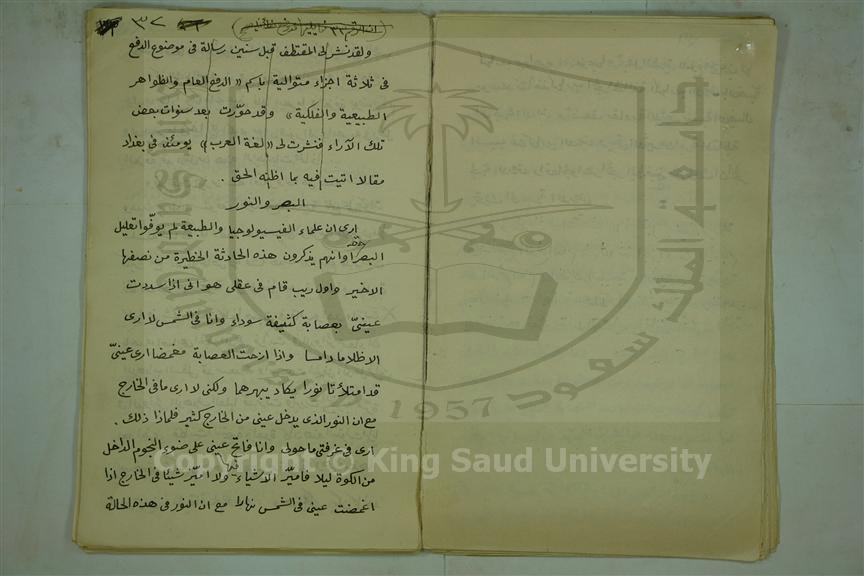 ٣٧
ولقد نشر لى المقتطف قبل سنين رسالة فى موضوع الدفع
فى ثلاثة اجزاء متوالية باسم « الدفع العام والظواهر
الطبيعية والفلكية» وقد حوّرت بعد سنوات بعض
تلك الآراء فنشرت لى «لغة العرب» يومئذ فى بغداد
مقالا اتيت فيه بما اظنه الحق .
البصر والنور
ارى ان علماء الفيسيولوجيا والطبيعة لم يوفّوا تعليل
البصر حقه وانهم يذكرون هذه الحادثة الخطيرة من نصفها
الاخير واول ريب قام فى عقلى هو انى اذا سددت
عينىّ بعصابة كثيفة سوداء وانا فى الشمس لا ارى
الا ظلاما دامسا واذا ازحت العصابة مغمضا ارى عينىّ
قد امتلأتا نورا يكاد يبهرهما ولكنى لا ارى ما فى الخارج
مع ان النور الذى يدخل عينى من الخارج كثير فلماذا ذلك .
ارى فى غرفتى ما حولى وانا فاتح عينى على ضوء النجوم الداخل
من الكوة ليلا فاميّز الاشياء فيها ولا اميّز شيئا فى الخارج اذا
اغمضت عينى فى الشمس نهارا مع ان النور فى هذه الحالة
جامعة الملك سعود
King Saud University
1957
Copyright © King Saud University